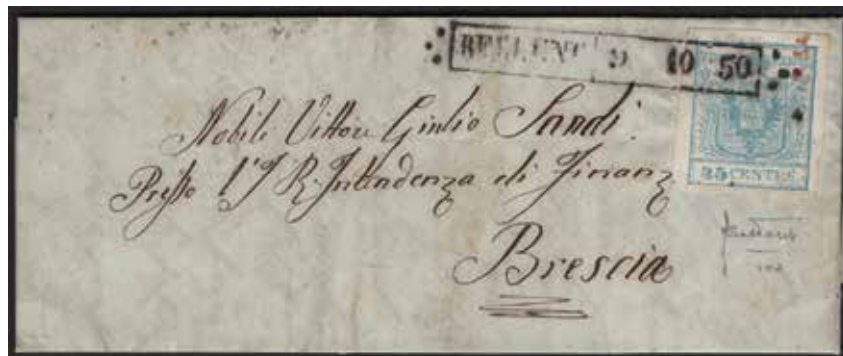 BELLUNO 9 10 50
45 CENTES
Nobile Vittore Giulio Sandi
Presso l'I R. Intendenza di Finanz
Brescia